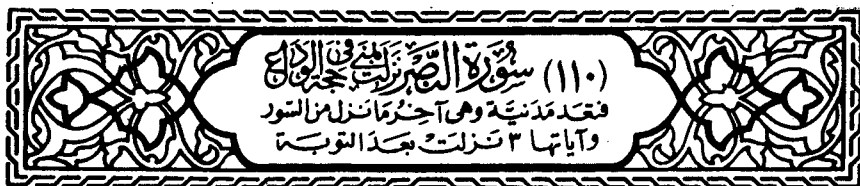 (١١٠) سُورَة النَّصْرِ نَزَلَتْ بِمِنًى فِي حَجَّةِ الوَدَاع
فتعد مدنيَّة وهى آخِرُ مَا نزل من السّور
وآياتها ٣ نَزلتْ بَعدَ التوبَة